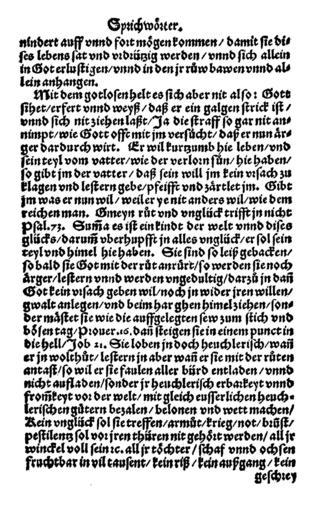 Sprichwörter.
nindert auff vnnd fort mögen kommen / damit sie di-
ses lebens sat vnd vrdrützig werden / vnnd sich allein
in Got erlustigen / vnnd in den jr rüw bawen vnnd al-
lein anhangen.
Mit dem gotlosen helt es sich aber nit also: Gott
sihet / erfert vnnd weyß / daß er ein galgen strick ist /
vnnd sich nit ziehen laßt / Ja die straff so gar nit an-
nimpt / wie Gott offt mit jm versücht / daß er nun är-
ger dardurch wirt. Er wil kurtzumb hie leben / vnd
sein teyl vom vatter / wie der verlorn sün / hie haben /
so gibt jm der vatter / daß sein will jm kein vrsach zu
klagen vnd lestern gebe / pfeifft vnd zärtlet jm. Gibt
jm was er nun wil / weil er ye nit anders wil / wie dem
reichen man. Gmeyn rüt vnd vnglück trifft jn nicht
Psal. 73. Suma es ist ein kindt der welt vnnd dises
glücks / darum̃ vberhupfft jn alles vnglück / er sol sein
teyl vnd himel hie haben. Sie sind so leiß gebacken /
so bald sie Got mit der rüt anrürt / so werden sie noch
ärger / lestern vnnd werden vngedultig / darzü jn dañ
Got kein vrsach geben wil / noch in wider jren willen /
gwalt anlegen / vnd beim har ghen himel ziehen / son-
der mästet sie wie die auffgelegten sew zum stich vnd
bösen tag / Prouer. 16. dañ steigen sie in einem punct in
die hell / Job 21. Sie loben in doch heuchlerisch / wañ
er jn wolthüt / lestern in aber wañ er sie mit der rüten
antast / so wil er sie faulen aller bürd entladen / vnnd
nicht aufladen / sonder jr heuchlerisch erbarkeyt vnnd
from̃keyt vor der welt / mit gleich eusserlichen heuch-
lerischen gütern bezalen / belonen vnd wett machen /
Kein vnglück sol sie treffen / armüt / krieg / not / brũst /
pestilentz sol vor jren thüren nit gehört werden / all jr
winckel voll sein ꝛc. all jr töchter / schaf vnnd ochsen
fruchtbar in vil tausent / kein riß / kein außgang / kein
geschrey